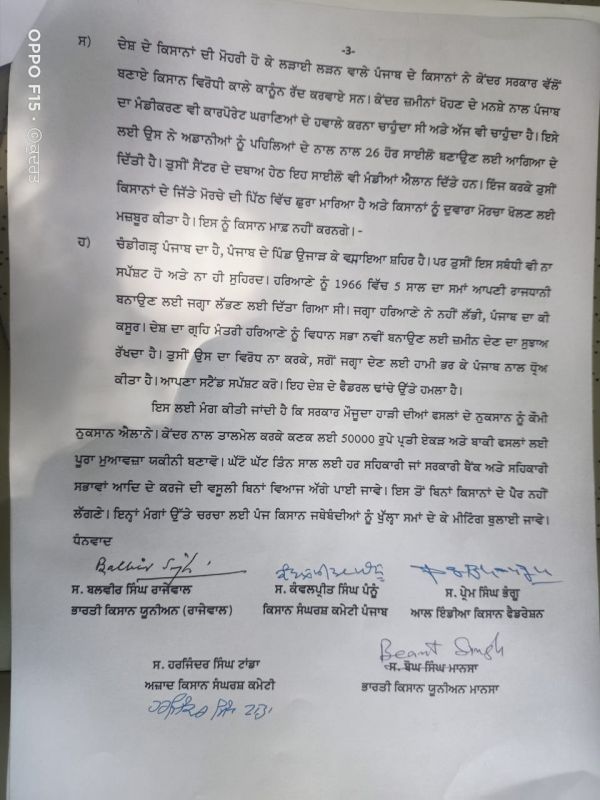 -3-
ਸ) ਦੇਸ਼ ਦੇ ਕਿਸਾਨਾਂ ਦੀ ਮੋਹਰੀ ਹੋ ਕੇ ਲੜਾਈ ਲੜਨ ਵਾਲੇ ਪੰਜਾਬ ਦੇ ਕਿਸਾਨਾਂ ਨੇ ਕੇਂਦਰ ਸਰਕਾਰ ਵੱਲੋਂ
ਬਣਾਏ ਕਿਸਾਨ ਵਿਰੋਧੀ ਕਾਲੇ ਕਾਨੂੰਨ ਰੱਦ ਕਰਵਾਏ ਸਨ। ਕੇਂਦਰ ਜ਼ਮੀਨਾਂ ਖੋਹਣ ਦੇ ਮਨਸ਼ੇ ਨਾਲ ਪੰਜਾਬ
ਦਾ ਮੰਡੀਕਰਣ ਵੀ ਕਾਰਪੋਰੇਟ ਘਰਾਣਿਆਂ ਦੇ ਹਵਾਲੇ ਕਰਨਾ ਚਾਹੁੰਦਾ ਸੀ ਅਤੇ ਅੱਜ ਵੀ ਚਾਹੁੰਦਾ ਹੈ। ਇਸੇ
ਲਈ ਉਸ ਨੇ ਅਡਾਨੀਆਂ ਨੂੰ ਪਹਿਲਿਆਂ ਦੇ ਨਾਲ ਨਾਲ 26 ਹੋਰ ਸਾਈਲੋ ਬਣਾਉਣ ਲਈ ਆਗਿਆ ਦੇ
ਦਿੱਤੀ ਹੈ। ਤੁਸੀਂ ਸੈਂਟਰ ਦੇ ਦਬਾਅ ਹੇਠ ਇਹ ਸਾਈਲੋ ਵੀ ਮੰਡੀਆਂ ਐਲਾਨ ਦਿੱਤੇ ਹਨ। ਇੰਜ ਕਰਕੇ ਤੁਸੀਂ
ਕਿਸਾਨਾਂ ਦੇ ਜਿੱਤੇ ਮੋਰਚੇ ਦੀ ਪਿੱਠ ਵਿੱਚ ਛੁਰਾ ਮਾਰਿਆ ਹੈ ਅਤੇ ਕਿਸਾਨਾਂ ਨੂੰ ਦੁਵਾਰਾ ਮੋਰਚਾ ਖੋਲਣ ਲਈ
ਮਜ਼ਬੂਰ ਕੀਤਾ ਹੈ। ਇਸ ਨੂੰ ਕਿਸਾਨ ਮਾਫ਼ ਨਹੀਂ ਕਰਨਗੇ।-
ਹ) ਚੰਡੀਗੜ੍ਹ ਪੰਜਾਬ ਦਾ ਹੈ, ਪੰਜਾਬ ਦੇ ਪਿੰਡ ਉਜਾੜ ਕੇ ਵਸਾਇਆ ਸ਼ਹਿਰ ਹੈ। ਪਰ ਤੁਸੀਂ ਇਸ ਸਬੰਧੀ ਵੀ ਨਾ
ਸਪੱਸ਼ਟ ਹੋ ਅਤੇ ਨਾ ਹੀ ਸੁਹਿਰਦ। ਹਰਿਆਣੇ ਨੂੰ 1966 ਵਿੱਚ 5 ਸਾਲ ਦਾ ਸਮਾਂ ਆਪਣੀ ਰਾਜਧਾਨੀ
ਬਨਾਉਣ ਲਈ ਜਗ੍ਹਾ ਲੱਭਣ ਲਈ ਦਿੱਤਾ ਗਿਆ ਸੀ। ਜਗ੍ਹਾ ਹਰਿਆਣੇ ਨੇ ਨਹੀਂ ਲੱਭੀ, ਪੰਜਾਬ ਦਾ ਕੀ
ਕਸੂਰ। ਦੇਸ਼ ਦਾ ਗ੍ਰਹਿ ਮੰਤਰੀ ਹਰਿਆਣੇ ਨੂੰ ਵਿਧਾਨ ਸਭਾ ਨਵੀਂ ਬਨਾਉਣ ਲਈ ਜ਼ਮੀਨ ਦੇਣ ਦਾ ਸੁਝਾਅ
ਰੱਖਦਾ ਹੈ। ਤੁਸੀਂ ਉਸ ਦਾ ਵਿਰੋਧ ਨਾ ਕਰਕੇ, ਸਗੋਂ ਜਗ੍ਹਾ ਦੇਣ ਲਈ ਹਾਮੀ ਭਰ ਕੇ ਪੰਜਾਬ ਨਾਲ ਧ੍ਰੋਅ
ਕੀਤਾ ਹੈ। ਆਪਣਾ ਸਟੈਂਡ ਸਪੱਸ਼ਟ ਕਰੋ। ਇਹ ਦੇਸ਼ ਦੇ ਫੈਡਰਲ ਢਾਂਚੇ ਉੱਤੇ ਹਮਲਾ ਹੈ।
ਇਸ ਲਈ ਮੰਗ ਕੀਤੀ ਜਾਂਦੀ ਹੈ ਕਿ ਸਰਕਾਰ ਮੌਜੂਦਾ ਹਾੜੀ ਦੀਆਂ ਫਸਲਾਂ ਦੇ ਨੁਕਸਾਨ ਨੂੰ ਕੌਮੀ
ਨੁਕਸਾਨ ਐਲਾਨੇ। ਕੇਂਦਰ ਨਾਲ ਤਾਲਮੇਲ ਕਰਕੇ ਕਣਕ ਲਈ 50000 ਰੁਪੇ ਪ੍ਰਤੀ ਏਕੜ ਅਤੇ ਬਾਕੀ ਫਸਲਾਂ ਲਈ
ਪੂਰਾ ਮੁਆਵਜ਼ਾ ਯਕੀਨੀ ਬਣਾਵੇ। ਘੱਟੋ ਘੱਟ ਤਿੰਨ ਸਾਲ ਲਈ ਹਰ ਸਹਿਕਾਰੀ ਜਾਂ ਸਰਕਾਰੀ ਬੈਂਕ ਅਤੇ ਸਹਿਕਾਰੀ
ਸਭਾਵਾਂ ਆਦਿ ਦੇ ਕਰਜੇ ਦੀ ਵਸੂਲੀ ਬਿਨਾਂ ਵਿਆਜ ਅੱਗੇ ਪਾਈ ਜਾਵੇ। ਇਸ ਤੋਂ ਬਿਨਾਂ ਕਿਸਾਨਾਂ ਦੇ ਪੈਰ ਨਹੀਂ
ਲੱਗਣੇ। ਇਨ੍ਹਾਂ ਮੰਗਾਂ ਉੱਤੇ ਚਰਚਾ ਲਈ ਪੰਜ ਕਿਸਾਨ ਜਥੇਬੰਦੀਆਂ ਨੂੰ ਖੁੱਲ੍ਹਾ ਸਮਾਂ ਦੇ ਕੇ ਮੀਟਿੰਗ ਬੁਲਾਈ ਜਾਵੇ।
ਧੰਨਵਾਦ
Balbir Singh
ਸ. ਬਲਵੀਰ ਸਿੰਘ ਰਾਜੇਵਾਲ ਸ. ਕੰਵਲਪ੍ਰੀਤ ਸਿੰਘ ਪੰਨੂੰ ਸ. ਪ੍ਰੇਮ ਸਿੰਘ ਭੰਗੂ
ਭਾਰਤੀ ਕਿਸਾਨ ਯੂਨੀਅਨ (ਰਾਜੇਵਾਲ) ਕਿਸਾਨ ਸੰਘਰਸ਼ ਕਮੇਟੀ ਪੰਜਾਬ ਆਲ ਇੰਡੀਆ ਕਿਸਾਨ ਫੈਡਰੇਸ਼ਨ
Beant Singh
ਸ. ਹਰਜਿੰਦਰ ਸਿੰਘ ਟਾਂਡਾ ਸ. ਬੋਘ ਸਿੰਘ ਮਾਨਸਾ
ਅਜ਼ਾਦ ਕਿਸਾਨ ਸੰਘਰਸ਼ ਕਮੇਟੀ ਭਾਰਤੀ ਕਿਸਾਨ ਯੂਨੀਅਨ ਮਾਨਸਾ
ਹਰਜਿੰਦਰ ਸਿੰਘ ਟਾਂਡਾ
OPPO F15 ·